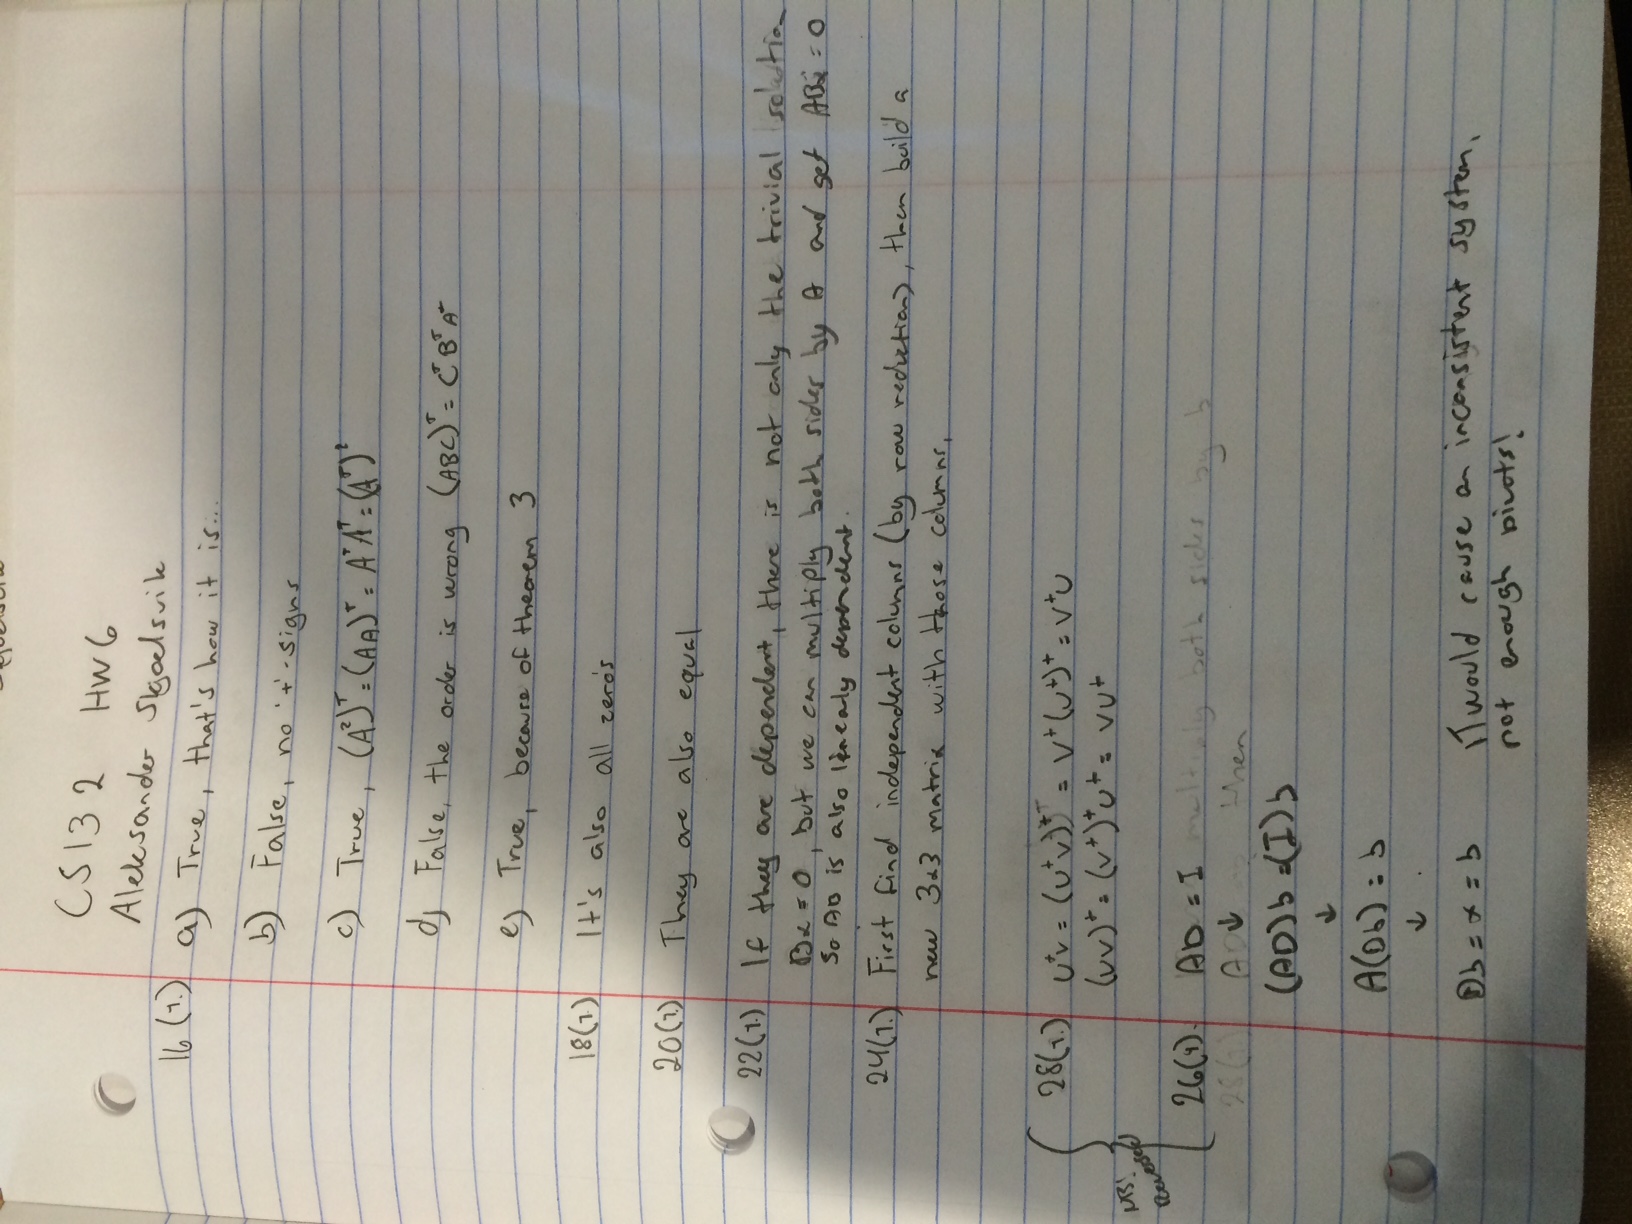 CS132 HW6
Aleksander Skjoelsvik
16(1.) a) True, that's how it is...
b) False, no '+'-signs
c) True, (A²)ᵀ = (AA)ᵀ = AᵀAᵀ = (Aᵀ)²
d) False, the order is wrong (ABC)ᵀ = CᵀBᵀAᵀ
e) True, because of theorem 3
18(1.) It's also all zero's
20(1.) They are also equal
22(1.) If they are dependent, there is not only the trivial solution
Bx = 0, but we can multiply both sides by A and get ABx = 0
So AB is also linearly dependent.
24(1.) First find independent columns (by row reduction), then build a
new 3x3 matrix with those columns,
28(1.) uᵀv = (uᵀv)ᵀ = vᵀ(uᵀ)ᵀ = vᵀu
(uv)ᵀ = (vᵀ)ᵀuᵀ = vuᵀ
NB!
Reversed
26(1). AD = I multiply both sides by b
28(1.) AD then
↓
(AD)b = (I)b
↓
A(Db) = b
↓
Db = x = b IT would cause an inconsistent system,
not enough pivots!